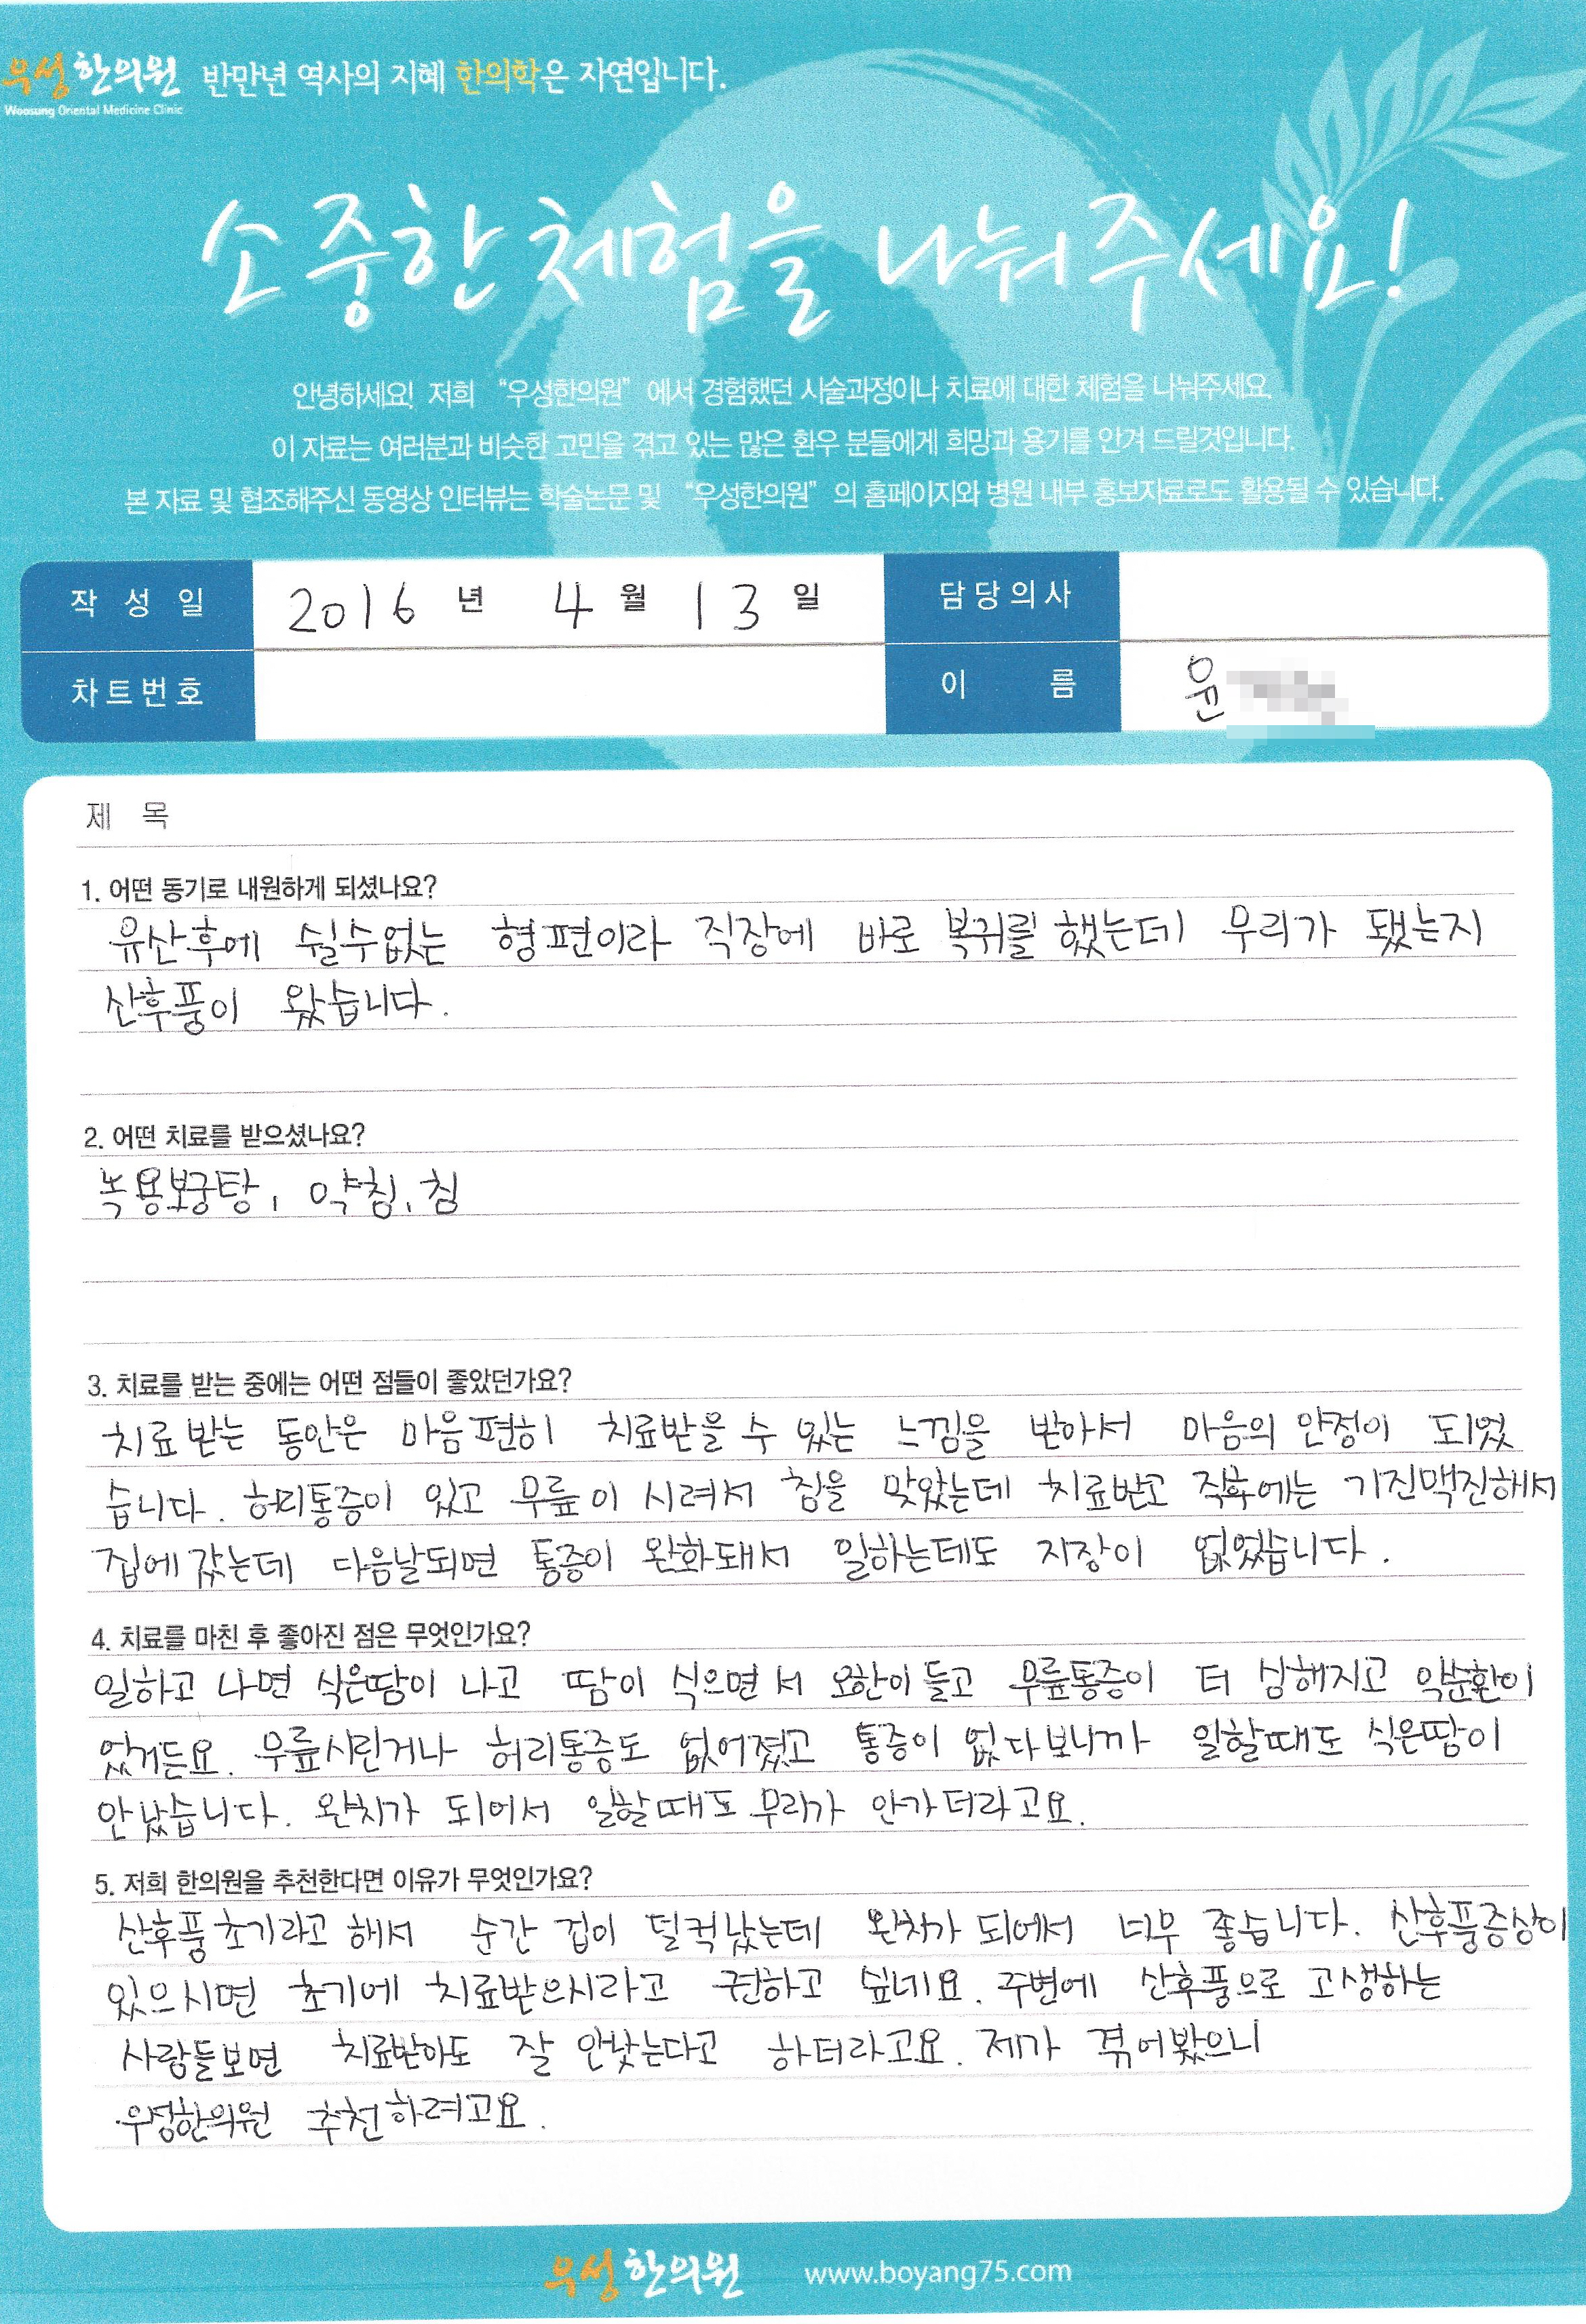 우성한의원 반만년 역사의 지혜 한의학은 자연입니다.
Woosung Oriental Medicine Clinic
소중한 체험을 나눠주세요!
안녕하세요! 저희 “우성한의원” 에서 경험했던 시술과정이나 치료에 대한 체험을 나눠주세요.
이 자료는 여러분과 비슷한 고민을 겪고 있는 많은 환우 분들에게 희망과 용기를 안겨 드릴것입니다.
본 자료 및 협조해주신 동영상 인터뷰는 학술논문 및 “우성한의원” 의 홈페이지와 병원 내부 홍보자료로도 활용될 수 있습니다.
작 성 일 2016 년 4 월 13 일 담당의사
차트번호 이 름 윤
제 목
1. 어떤 동기로 내원하게 되셨나요?
유산후에 쉴수없는 형편이라 직장에 바로 복귀를 했는데 무리가 됐는지
산후풍이 왔습니다.
2. 어떤 치료를 받으셨나요?
녹용보궁탕, 약침, 침
3. 치료를 받는 중에는 어떤 점들이 좋았던가요?
치료받는 동안은 마음편히 치료받을 수 있는 느낌을 받아서 마음의 안정이 되었
습니다. 허리통증이 있고 무릎이 시려서 침을 맞았는데 치료받고 직후에는 기진맥진해서
집에 갔는데 다음날되면 통증이 완화돼서 일하는데도 지장이 없었습니다.
4. 치료를 마친 후 좋아진 점은 무엇인가요?
일하고 나면 식은땀이 나고 땀이 식으면서 오한이 들고 무릎통증이 더 심해지고 악순환이
었거든요. 무릎시린거나 허리통증도 없어졌고 통증이 없다보니까 일할때도 식은땀이
안났습니다. 완치가 되어서 일할때도 무리가 안가더라고요.
5. 저희 한의원을 추천한다면 이유가 무엇인가요?
산후풍초기라고 해서 순간 겁이 덜컥났는데 완치가 되어서 너무 좋습니다. 산후풍증상이
있으시면 초기에 치료받으시라고 권하고 싶네요. 주변에 산후풍으로 고생하는
사람들보면 치료받아도 잘 안낫는다고 하더라고요. 제가 겪어봤으니
우성한의원 추천하려고요.
우성한의원 www.boyang75.com